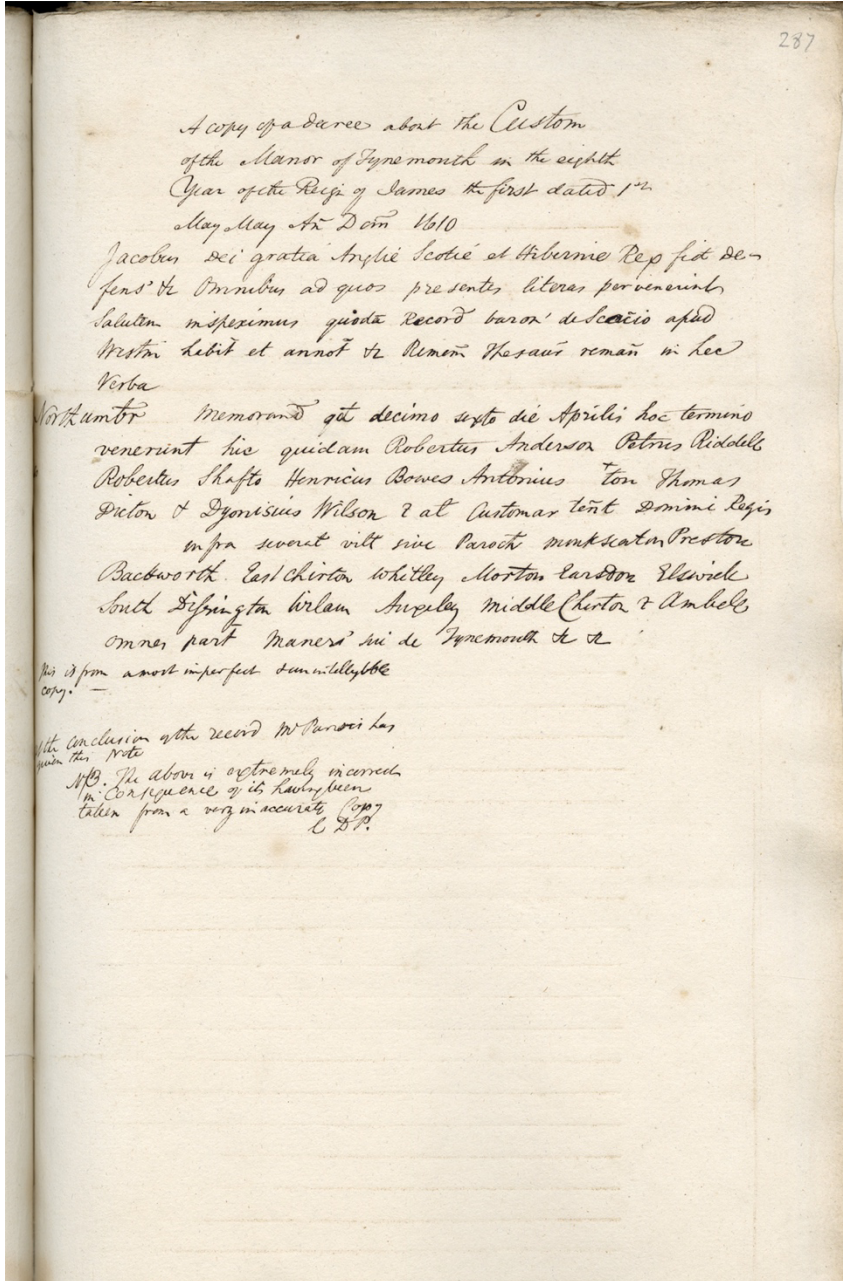 287
A copy of a decree about the Custom
of the Manor of Tynemouth in the eighth
Year of the Reign of James the first dated 1st
May May An Dom 1610
Jacobus Dei gratia Anglie Scotie et Hibernie Rex fid De-
fens' &c Omnibus ad quos presentes literas pervenerint
Salutem inspeximus quoda Record baron' de Sccacio apud
Westm habit et annot &c Remem Thesaur reman in hec
Verba
Northumbr Memorand qd decimo sexto die Aprilis hoc termino
venerunt hic quidam Robertus Anderson Petrus Riddell
Robertus Shafto Henricus Bowes Antonius ton Thomas
Dicton & Dyonisius Wilson & al Customar tent Domini Regis
infra several vill sive Paroch monkseaton Preston
Backworth East Chirton Whitley Morton Earsdon Elswick
South Dissington Wilam Anyeley middle Cherton & Amble
omnes part Maner' sui de Tynemouth &c &c
This is from a most imperfect & unintellyble
copy. —
the conclusion of the record Mr has
given this Note
NB. The above is extremely incorrect
in Consequence of its having been
taken from a very inaccurate Copy
C D P.